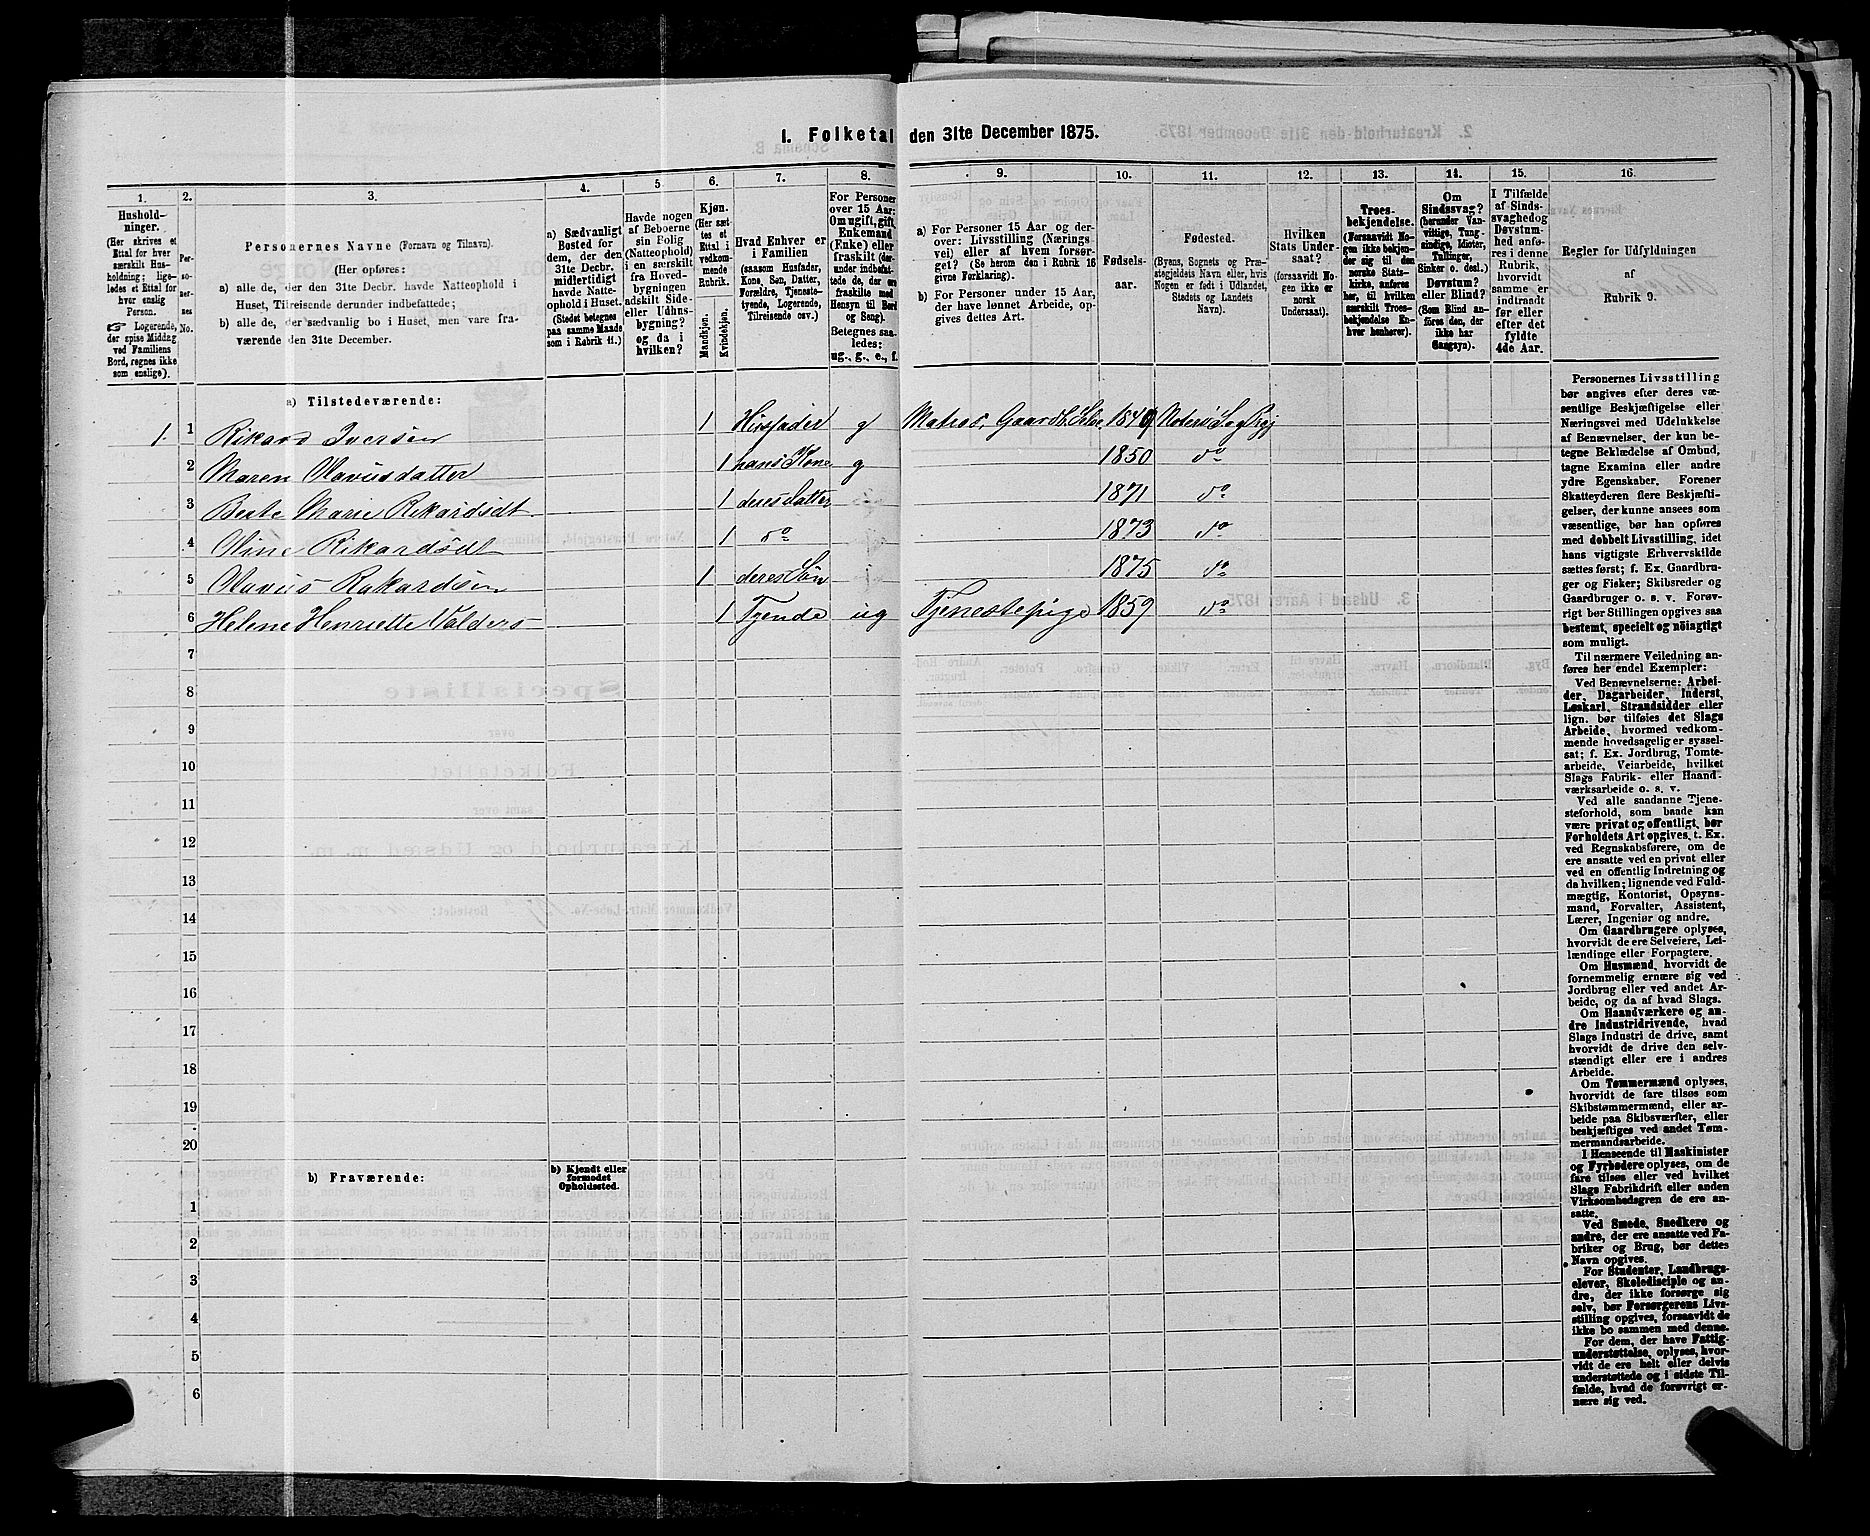 1. Folketal den 31te December 1875.
1. 2. 3. 4. 5. 6. 7. 8. 9. 10. 11. 12. 13. 14. 15. 16.
Hushold-
ninger.
(Her skrives et
Ettal for hver
særskilt Hus-
holdning; lige-
ledes et Ettal for
hver enslig
Person.
☞ Logerende,
der spise Middag
ved Familiens
Bord, regnes ikke
som enslige).
Per-
so-
ner-
nes
No.
Personernes Navne (Fornavn og Tilnavn).
(Her opføres:
a) alle de, der den 31te Decbr. havde Natteophold i
Huset, Tilreisende derunder indbefattede;
b) alle de, der sædvanlig bo i Huset, men vare fra-
værende den 31te December.
a) Sædvanligt
Bosted for
dem, der den
31te Decbr.
midlertidigt
havde Natte-
ophold i Huset.
(Stedet betegnes
paa samme Maade
som i Rubrik 11.)
Havde nogen
af Beboerne
sin Bolig
(Natteophold)
i en særskilt
fra Hoved-
bygningen
adskilt Side-
eller Udhus-
bygning?
og da i
hvilken?
Kjøn.
(Her sæt-
tes et
Ettal i
vedkom-
mende
Rubrik.
Mandkjøn.
Kvindekjøn.
Hvad Enhver er
i Familien
(saasom Husfader,
Kone, Søn, Datter,
Forældre, Tjeneste-
tyende, Logerende,
Tilreisende osv.)
For Personer
over 15 Aar:
Om ugift, gift,
Enkemand
(Enke) eller
fraskilt (der-
under indbefat-
tede de, der ere
fraskilte med
Hensyn til Bord
og Seng).
Betegnes saa-
ledes:
ug., g., e., f.
a) For Personer 15 Aar og der-
over: Livsstilling (Nærings-
vei) eller af hvem forsør-
get? (Se herom den i Rubrik 16
givne Forklaring).
b) For Personer under 15 Aar,
der have lønnet Arbeide, op-
gives dettes Art.
Fødsels-
aar.
Fødested.
(Byens, Sognets og Præ-
stegjeldets Navn eller, hvis
Nogen er født i Udlandet,
Stedets og Landets
Navn).
Hvilken
Stats Under-
saat?
(forsaavidt No-
gen ikke er
norsk
Undersaat).
Troes-
bekjendelse.
(Forsaavidt No-
gen ikke bekjen-
der sig til den
norske Stats-
kirke, anføres
her, til hvilken
særskilt Troes-
bekjendelse En-
hver henhører).
Om
Sindssvag?
(herunder Van-
vittige, Tung-
sindige, Idioter,
Tullinger,
Sinker o. desl.)
Døvstum?
eller Blind?
(Som Blind an-
føres den, der
ikke har
Gangsyn).
I Tilfælde
af Sinds-
svaghed og
Døvstum-
hed anfø-
res i denne
Rubrik,
hvorvidt
samme er
indtraadt
før eller
efter det
fyldte
4de Aar.
Regler for Udfyldningen
af
Rubrik 9.
a) Tilstedeværende:
1. 1 Rikard Iversen 1 Husfader g Matros, Gaardb. Selve. 1849
2 Maren Olavusdatter 1 hans Kone g 1850 do
3 Berte Marie Rikardsdt 1 deres Datter 1871 do
4 Oline Rikardsdt 1 do 1873 do
5 Olavus Rikardsen 1 deres Søn 1875 do
6 Helene Henriette Valders 1 Tyende ug Tjenestepige 1859 do
7
8
9
10
11
12
13
14
15
16
17
18
19
20
b) Fraværende:
b) Kjendt eller
formodet
Opholdssted.
1
2
3
4
5
6
Personernes Livsstilling
bør angives efter deres væ-
sentlige Beskjæftigelse eller
Næringsvei med Udelukkelse
af Benævnelser, der kun be-
tegne Beklædelse af Ombud,
tagne Examina eller andre
ydre Egenskaber. Forener
Skatteyderen flere Beskjæfti-
gelser, der kunne ansees som
væsentlige, bør han opføres
med dobbelt Livsstilling, idet
hans vigtigste Erhvervskilde
sættes først; f. Ex. Gaardbru-
ger og Fisker; Skibsreder og
Gaardbruger o. s. v. Forøv-
rigt bør Stillingen opgives saa
bestemt, specielt og nøiagtigt
som muligt.
Til nærmere Veiledning an-
føres her endel Exempler:
Ved Benævnelserne: Arbei-
der, Dagarbeider, Inderst,
Løskarl, Strandsidder eller
lign. bør tilføies det Slags
Arbeide, hvormed vedkom-
mende hovedsagelig er syssel-
sat; f. Ex. Jordbrug, Tomte-
arbeide, Veiarbeide, hvilket
Slags Fabrik- eller Haand-
værksarbeide o. s. v.
Ved alle saadanne Tjene-
steforhold, som baade kan
være privat og offentligt, bør
Forholdets Art opgives, t. Ex.
ved Regnskabsførere, om de
ere ansatte ved en privat eller
ved en offentlig Indretning og
da hvilken; lignende ved Fuld-
mægtig, Kontorist, Opsyns-
mand, Forvalter, Assistent,
Lærer, Ingeniør og andre.
Om Gaardbrugere oplyses,
hvorvidt de ere Selveiere, Lei-
lændinge eller Forpagtere.
Om Husmænd, hvorvidt de
fornemmelig ernære sig ved
Jordbrug eller ved andet Ar-
beide, og da af hvad Slags.
Om Haandværkere og an-
dre Industridrivende, hvad
Slags Industri de drive, samt
hvorvidt de drive den selv-
stændigt eller ere i andres
Arbeide.
Om Tømmermænd oplyses,
hvorvidt de fare tilsøs som
Skibstømmermænd, eller ar-
beide paa Skibsværfter, eller
beskjæftiges ved andet Tøm-
mermandsarbeide.
I Henseende til Maskinister
og Fyrbødere oplyses, om de
fare tilsøs eller ved hvilket
Slags Fabrikdrift eller anden
Virksomhedsgren de ere an-
satte.
Ved Smede, Snedkere og
andre, der ere ansatte ved Fa-
briker og Brug, bør dettes
Navn opgives.
For Studenter, Landbrugs-
elever, Skoledisciple og an-
dre, der ikke forsørge sig
selv, bør Forsørgerens Livs-
stilling opgives, forsaavidt de
ikke bo sammen med denne.
For dem, der have Fattig-
understøttelse, oplyses, hvor-
vidt de ere helt eller delvis
understøttede og i sidste Til-
fælde, hvad de forøvrigt er-
nære sig ved.